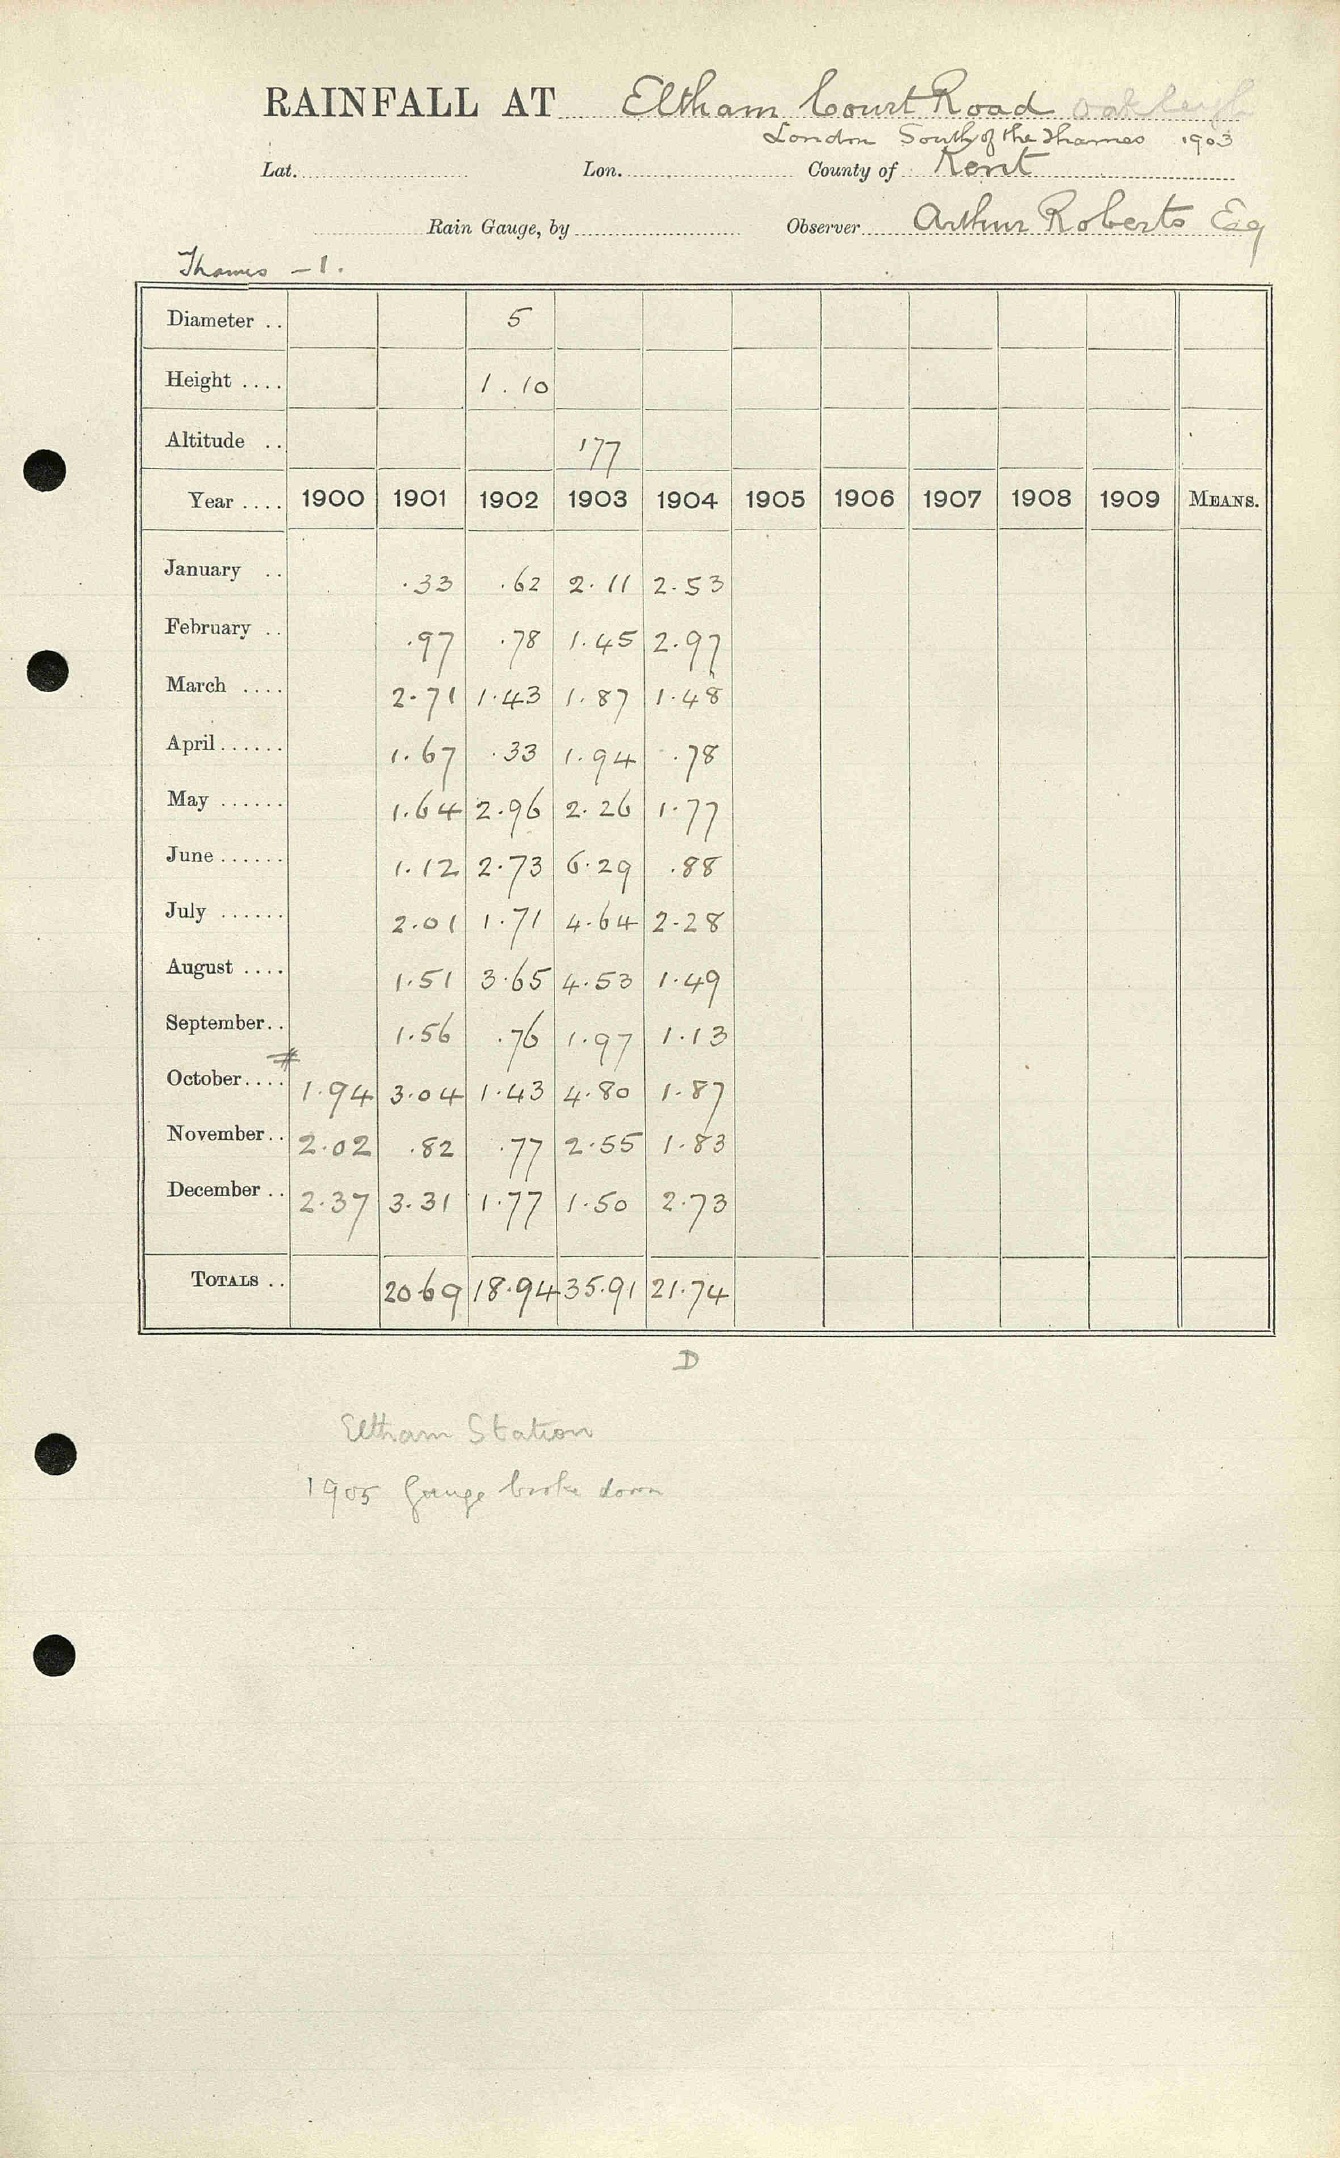 RAINFALL AT Eltham Court Road Oakleigh
London South of the Thames 1903
Lat. Lon. County of Kent
Rain Gauge, by Observer Arthur Roberts Esq
Thames - 1.
Diameter .. 5
Height .... 1.10
Altitude .. 177
Year .... 1900 1901 1902 1903 1904 1905 1906 1907 1908 1909 MEANS.
January .. .33 .62 2.11 2.53
February .. .97 .78 1.45 2.97
March .... 2.71 1.43 1.87 1.48
April...... 1.67 .33 1.94 .78
May ...... 1.64 2.96 2.26 1.77
June...... 1.12 2.73 6.29 .88
July ...... 2.01 1.71 4.64 2.28
August .... 1.51 3.65 4.53 1.49
September.. 1.56 .76 1.97 1.13
October.... 1.94 3.04 1.43 4.80 1.87
November.. 2.02 .82 .77 2.55 1.83
December .. 2.37 3.31 1.77 1.50 2.73
TOTALS .. 20.69 18.94 35.91 21.74
D
Eltham Station
1905 Gauge broke down